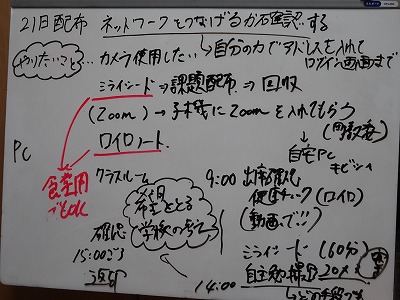 21日配布 ネットワークとつなげるか確認する
やりたいこと…カメラ使用したい
自分の力でアドレスを入れて
ログイン画面まで
ミライシード⇒課題配布⇒回収
(Zoom)→子機にZoomを入れてもらう
ロイロノート.
自宅PC
キビシイ
PC
兼用
でもOK
クラスルーム
希望をとる
学校の考え
確認
15:00ごろ
9:00 出席確認
健康チェック(ロイロ)
(動画で!!)
ミライシード(60分)
14:00
自主勉